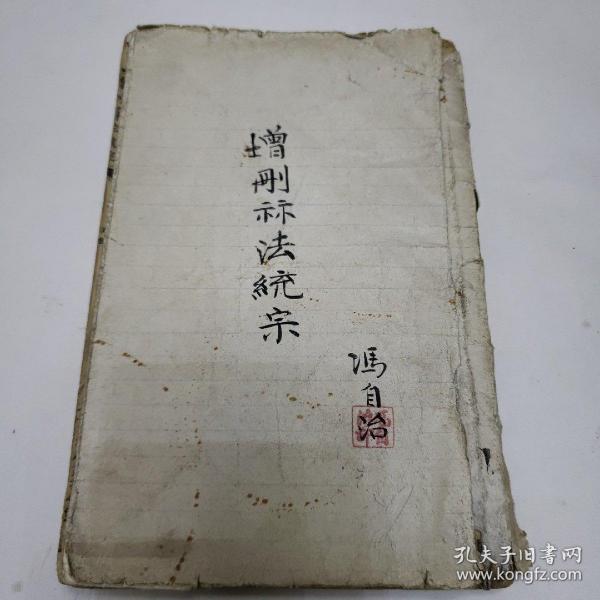 增刪祘法統宗
馮自治
孔夫子旧书网
www.kongfz.com